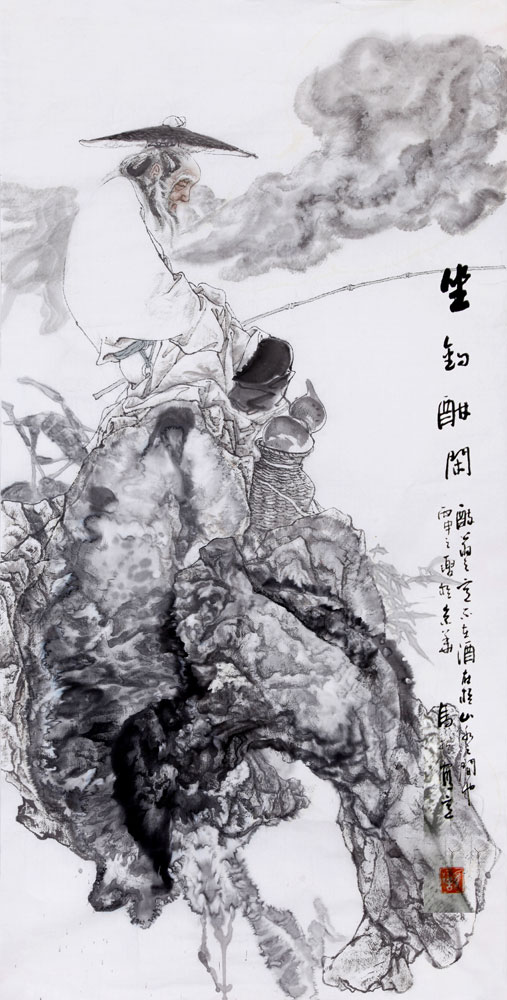 坐钓酣閑
醉翁之意不在酒在於山水之間也
丙申之夏於京華